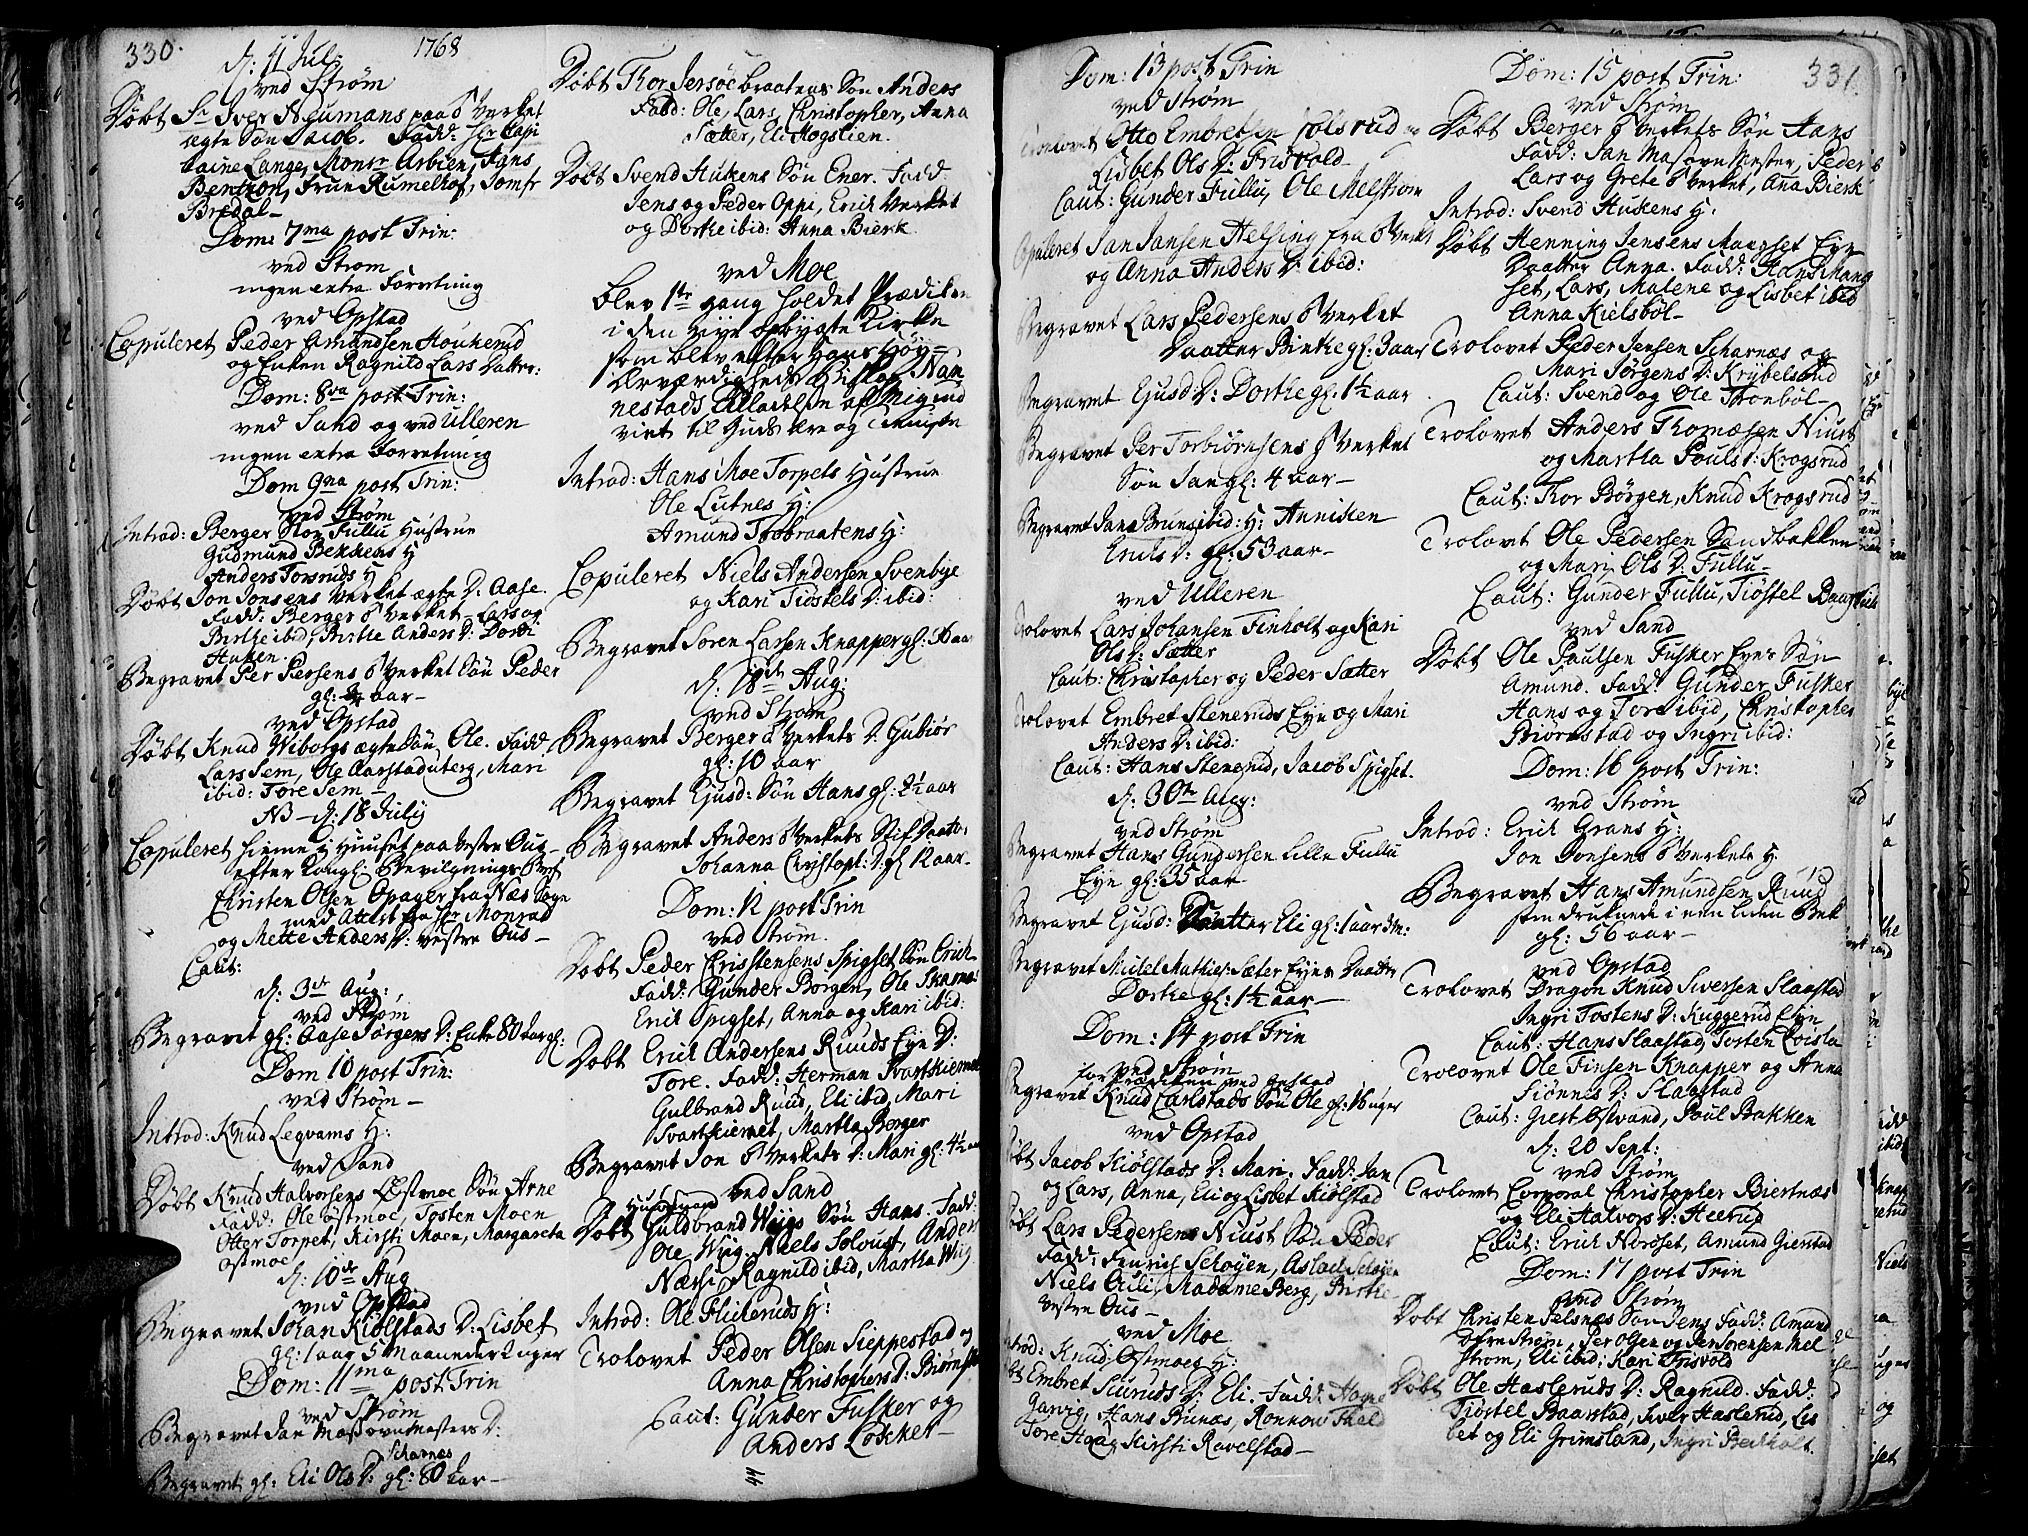 330.
1768
d: 11 Julj
ved Strøm
Døbt Sr Iver Neumans paa Verket
ægte Søn Jacob. Fadd: Hr Capi
taine Lange, Monsr Arbien, Hans
Bentzon, Frue Rumelhof, Jomfr
Bredal
Dom: 7ma post Trin:
ved Strøm
ingen extra Forretning
ved Opstad
Copuleret Peder Amundsen Houkerud
og Enken Ragnild Lars Datter:
Dom: 8va post Trin:
ved Sand og ved Ulleren
ingen extra Forretning
Dom 9na post Trin:
ved Strøm
Introd: Berger Stor Fullu Hustrue
Gudmund Bekkens H
Anders Torsruds H
Døbt Jon Jonsens Verket ægte D: Aase.
Fadd: Berger Verket Lars og
Birthe ibid, Birthe Anders D: Dorthe
Huken.
Begravet Per Persens Verket Søn Peder
gl: aar
ved Opstad
Døbt Knud Wiborgs ægte Søn Ole. Fadd
Lars Sem, Ole Aarstaduteig, Mari
ibid: Tore Sem
NB d: 18 Julij
Copuleret hieme i Huuset paa Vestre Ous
efter Kongl: Bevilgnings Brev
Christen Olsen Opager fra Næs Sogn
med Attest fra Hr Monrad
og Mette Anders D: Vestre Ous
Caut:
d: 3de Aug:
ved Strøm
Begravet gl: Aase Jørgens D: Enke 80 Aar gl:
Dom 10 post Trin:
ved Strøm
Introd: Knud Legvams H:
ved Sand
Døbt Knud Halvorsens Østmoe Søn Arne
Fadd: Ole Østmoe, Tosten Moen
Otter Torpet, Kirsti Moen, Margareta
Ostmoe
d: 10de Aug
ved Opstad
Begravet Johan Kiølstads D: Lisbet
gl: 1 aar 5 Maaneder 2 uger
Dom: 11ma post Trin
ved Strøm
Begravet Jan Masovnmesters D:
Begravet gl: Eli Ols D: Scharnæs gl: 80 Aar
Døbt Thor Jersøebraatens Søn Anders
Fadd: Ole, Lars, Christopher, Anna
Sætter, Eli Hogstien.
Døbt Svend Hukens Søn Ener. Fadd
Jens og Peder Oppi, Erich Verket
og Dorthe ibid: Anna Bierk
ved Moe
blev 1te gang holdet Prædiken
i den nye opbygte Kirke
som blev efter Hans Høy=
ærværdigheds Biskop Nan
nestads Tilladelse af Mig ind
viet til Guds Ære og Tieniste
Introd: Hans Moe Torpets Hustrue
Ole Lutnes H:
Amund Trobraatens H:
Copuleret Niels Andersen Svenbye
og Kari Tiøstels D: ibid:
Begravet Søren Larsen Knapper gl: aar
d: 18de Aug:
ved Strøm
Begravet Berger Verkets D: Gubiør
gl: 10 aar
Begravet Ejusd: Søn Hans gl: 2½ aar
Begravet Anders Verkets Stif Daatter
Johanna Christoph: D: gl 12 aar
Dom: 12 post Trin
ved Strøm.
Døbt Peder Christensens Spigset Søn Erich
Fadd: Gunder Børgen, Ole Skarnæs
Erik Spigset, Anna og Kari ibid:
Døbt Erich Andersens Ruuds Eye D:
Tore. Fadd: Herman Svartkiernet
Gulbrand Ruud, Eli ibid, Mari
Svartkiernet, Martha Børger
Begravet Jon Verkets D: Mari gl: 4½ aar
ved Sand
Døbt Huusmand Guldbrand Wiigs Søn Hans. Fadd:
Ole Wiig, Niels Solbust, Anders
Næssi, Ragnild ibid, Martha Wiig
Introd: Ole Fliteruds H:
Trolovet Peder Olsen Sieppestad og
Anna Christophers D: Biørnstad
Caut: Gunder Fusker og
Anders Løkker
Dom: 13 post Trin
ved Strøm
Trolovet Otto Embretsen Tolsrud og
Lisbet Ols D: Frisvold
Caut: Gunder Fullu, Ole Melstrøm
Copuleret Jan Jansen Helsing fra Verket
og Anna Anders D: ibid:
Begravet Lars Pedersens Verket
Daatter Birthe gl: 3 aar
Begravet Ejusd D: Dorthe gl: 1½ aar
Begravet Per Torbiørnsens Verket
Søn Jan gl: 4 aar
Begravet Jan Bruns ibid: H: Anniken
Erichs D: gl: 53 aar
ved Ulleren
Trolovet Lars Johansen Finholt og Kari
Ols D: Sætter
Caut: Christopher og Peder Sætter
Trolovet Embret Steneruds Eye og Mari
Anders D: ibid:
Caut: Hans Stenerud, Jacob Spigset.
d: 30te Aug:
ved Strøm
Begravet Hans Gundersen Lille Fullu
Eye gl: 35 aar
Begravet Ejusd: Daatter Eli gl: 1 aar 3 m:
Begravet Mikel Mathies: Sæter Eyes Daatter
Dorthe gl: 1½ aar
Dom: 14 post Trin
ved Strøm
for Prædiken ved Opstad
Begravet Knud Carlstads Søn Ole gl: 16 uger
ved Opstad
Døbt Jacob Kiølstads D: Mari. Fadd: Jan
og Lars, Anna, Eli og Lisbet Kiølstad
Døbt Lars Pedersens Niust Søn Peder
Fadd: Henrich Schøyen, Aslach Schøyen
Niels Auli, Madame Berg, Birthe
Vestre Ous
ved Moe
Introd: Knud Østmoes H:
Døbt Embret Sluruds D: Eli. Fadd: Hagen
Garvig, Hans Bunæs, Ronnow Thald
Tore Haag, Kirsti Ravelstad
331.
Dom: 15 post Trin:
ved Strøm
Døbt Berger Verkets Søn Hans
Fadd: Jan Masovnmester, Peder
Lars og Grete Verket, Ana Bierk
Introd: Svend Hukens H:
Døbt Henning Jensens Mangset Eye
Daatter Anna. Fadd: Hans Mang
set, Lars, Malene og Lisbet ibid
Anna Kielsbøl
Trolovet Peder Jensen Scharnæs og
Mari Jørgens D: Krybelsrud
Caut: Svend og Ole Tronbøl
Trolovet Anders Thomæsen Niust
og Martha Pouls D: Krogsrud
Caut: Thor Børgen, Knud Krogsrud
Trolovet Ole Pedersen Sandbakken
og Mari Ols D: Fullu
Caut: Gunder Fullu, Tiøstel Baarstad
ved Sand
Døbt Ole Paulsen Fusker Eyes Søn
Amund. Fadd: Gunder Fusker
Hans og Tore ibid, Christopher
Biørnstad og Ingri ibid:
Dom: 16 post Trin:
ved Strøm
Introd: Erich Grans H:
Jon Jonsens Verkets H:
Begravet Hans Amundsen Ruud
som druknede i een liden Bek
gl: 56 aar
ved Opstad
Trolovet Dragon Knud Iversen Slaastad
Ingri Tostens D: Kuggerud Eye
Caut: Hans Slaastad, Tosten Loista
Trolovet Ole Finsen Knapper og Anna
Siønnes D: Slaastad
Caut: Giest Østvand, Poul Bakken
d: 20 Sept:
ved Strøm
Trolovet Corporal Christopher Biertnæs
og Eli Halvors D: Heerud
Caut: Erich Norset, Amund Gierstad
Dom: 17 post Trin
ved Strøm
Døbt Christen Pelsnæs Søn Jens Fadd: Amund
Øfre Strøm, Per Olsen og Per Sørensen Mel
strøm, Eli ibid; Kari Frisvold
Døbt Ole Hasleruds D: Ragnild. Fadd:
Tiøstel Baarstad, Iver Haslerud, Lis
bet og Eli Grimsland, Ingri Bechholt